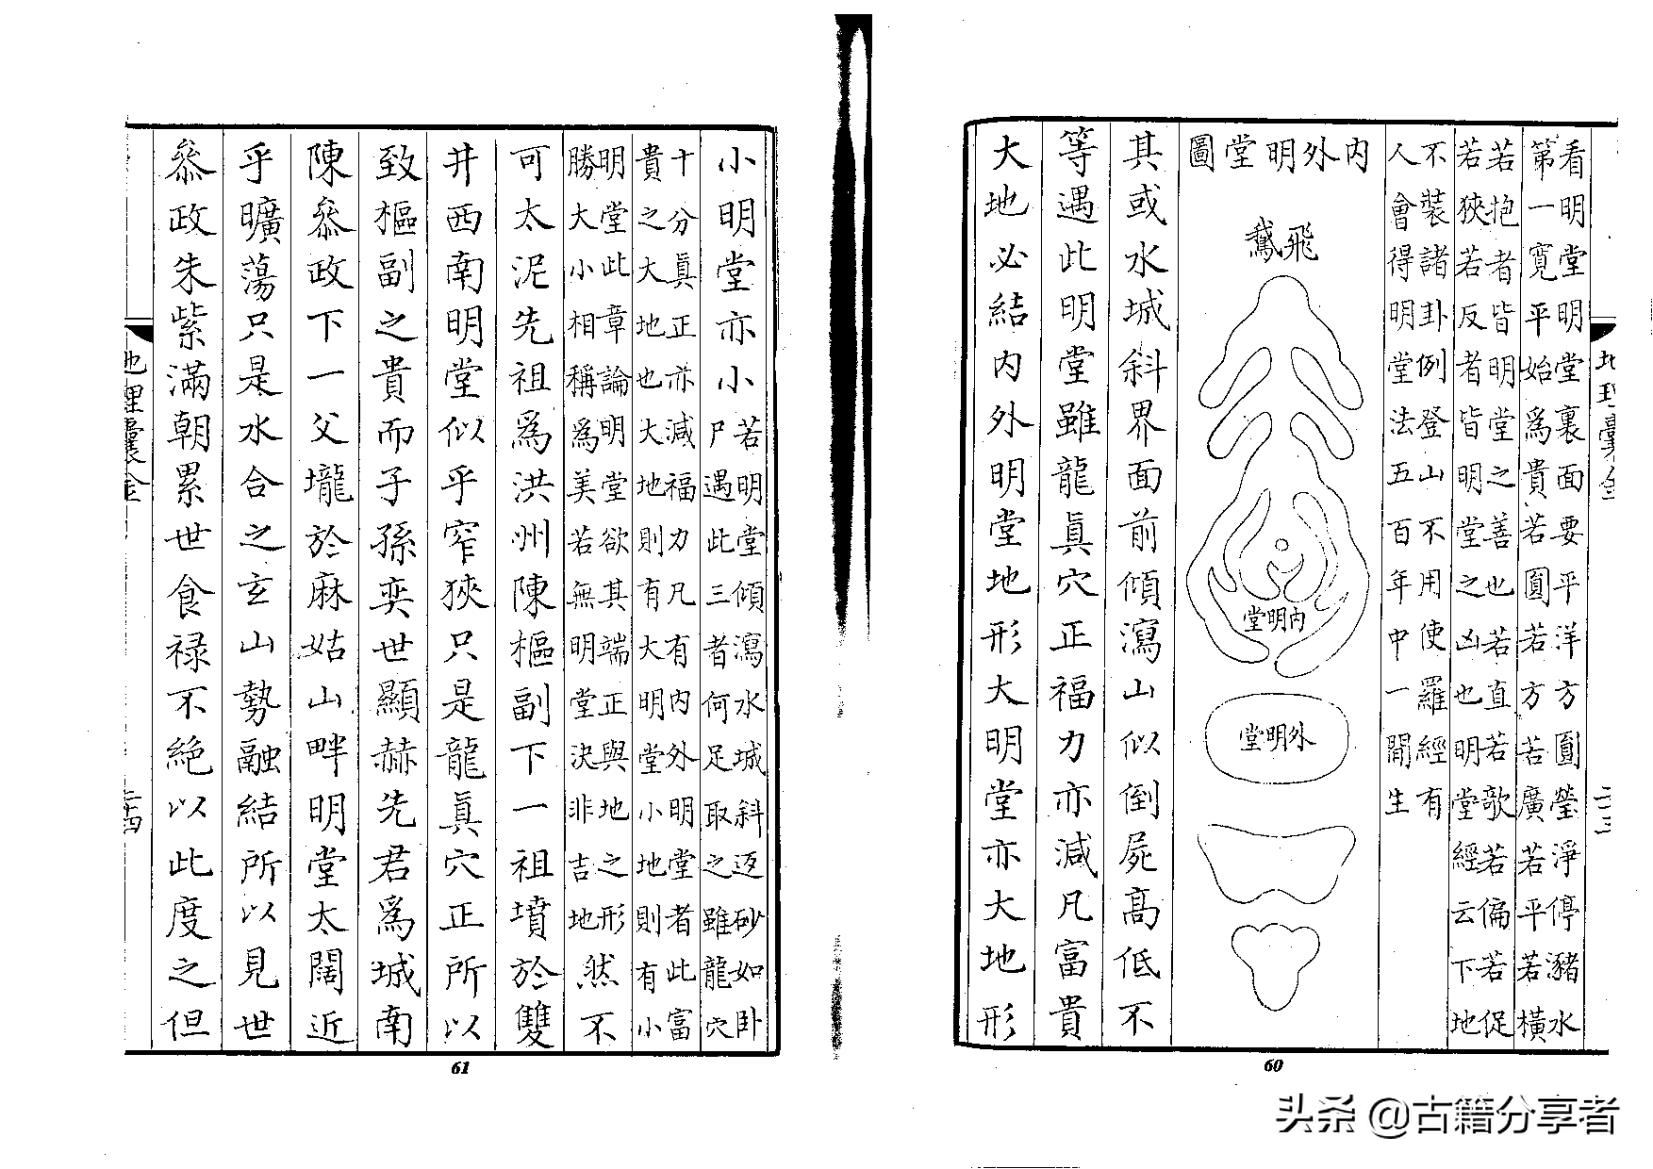 地理囊金
二十三
看明堂明堂裏面要平洋方圓瑩淨停豬水
第一寬平始爲貴若圓若方若廣若平若橫
若抱者皆明堂之善也若直若歌若偏若促
若狹若反者皆明堂之凶也明堂經云下地
不裝諸卦例登山不用使羅經有
人會得明堂法五百年中一間生
內外明堂圖
飛鵞
內明堂
外明堂
其或水城斜界面前傾瀉山似倒屍高低不
等遇此明堂雖龍眞穴正福力亦減凡富貴
大地必結內外明堂地形大明堂亦大地形
60
小明堂亦小
若明堂傾瀉水城斜返砂如卧
尸遇此三者何足取之雖龍穴
十分眞正亦減福力凡有內外明堂者此富
貴之大地也大地則有大明堂小地則有小
明堂此章論明堂欲其端正與地之形
勝大小相稱爲美若無明堂決非吉地
然不
可太泥先祖爲洪州陳樞副下一祖墳於雙
井西南明堂似乎窄狹只是龍眞穴正所以
致樞副之貴而子孫奕世顯赫先君爲城南
陳叅政下一父壠於麻姑山畔明堂太闊近
乎曠蕩只是水合之玄山勢融結所以見世
叅政朱紫滿朝累世食祿不絕以此度之但
地理囊金
二十四
61
头条 @古籍分享者